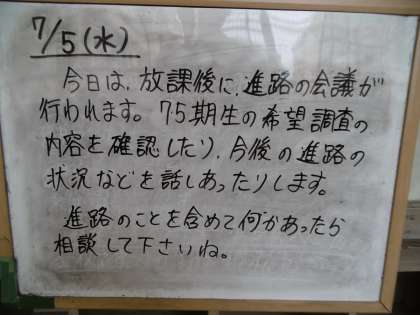 7/5(水)
今日は、放課後に、進路の会議が
行われます。75期生の希望調査の
内容を確認したり、今後の進路の
状況などを話しあったりします。
進路のことを含めて何かあったら
相談して下さいね。